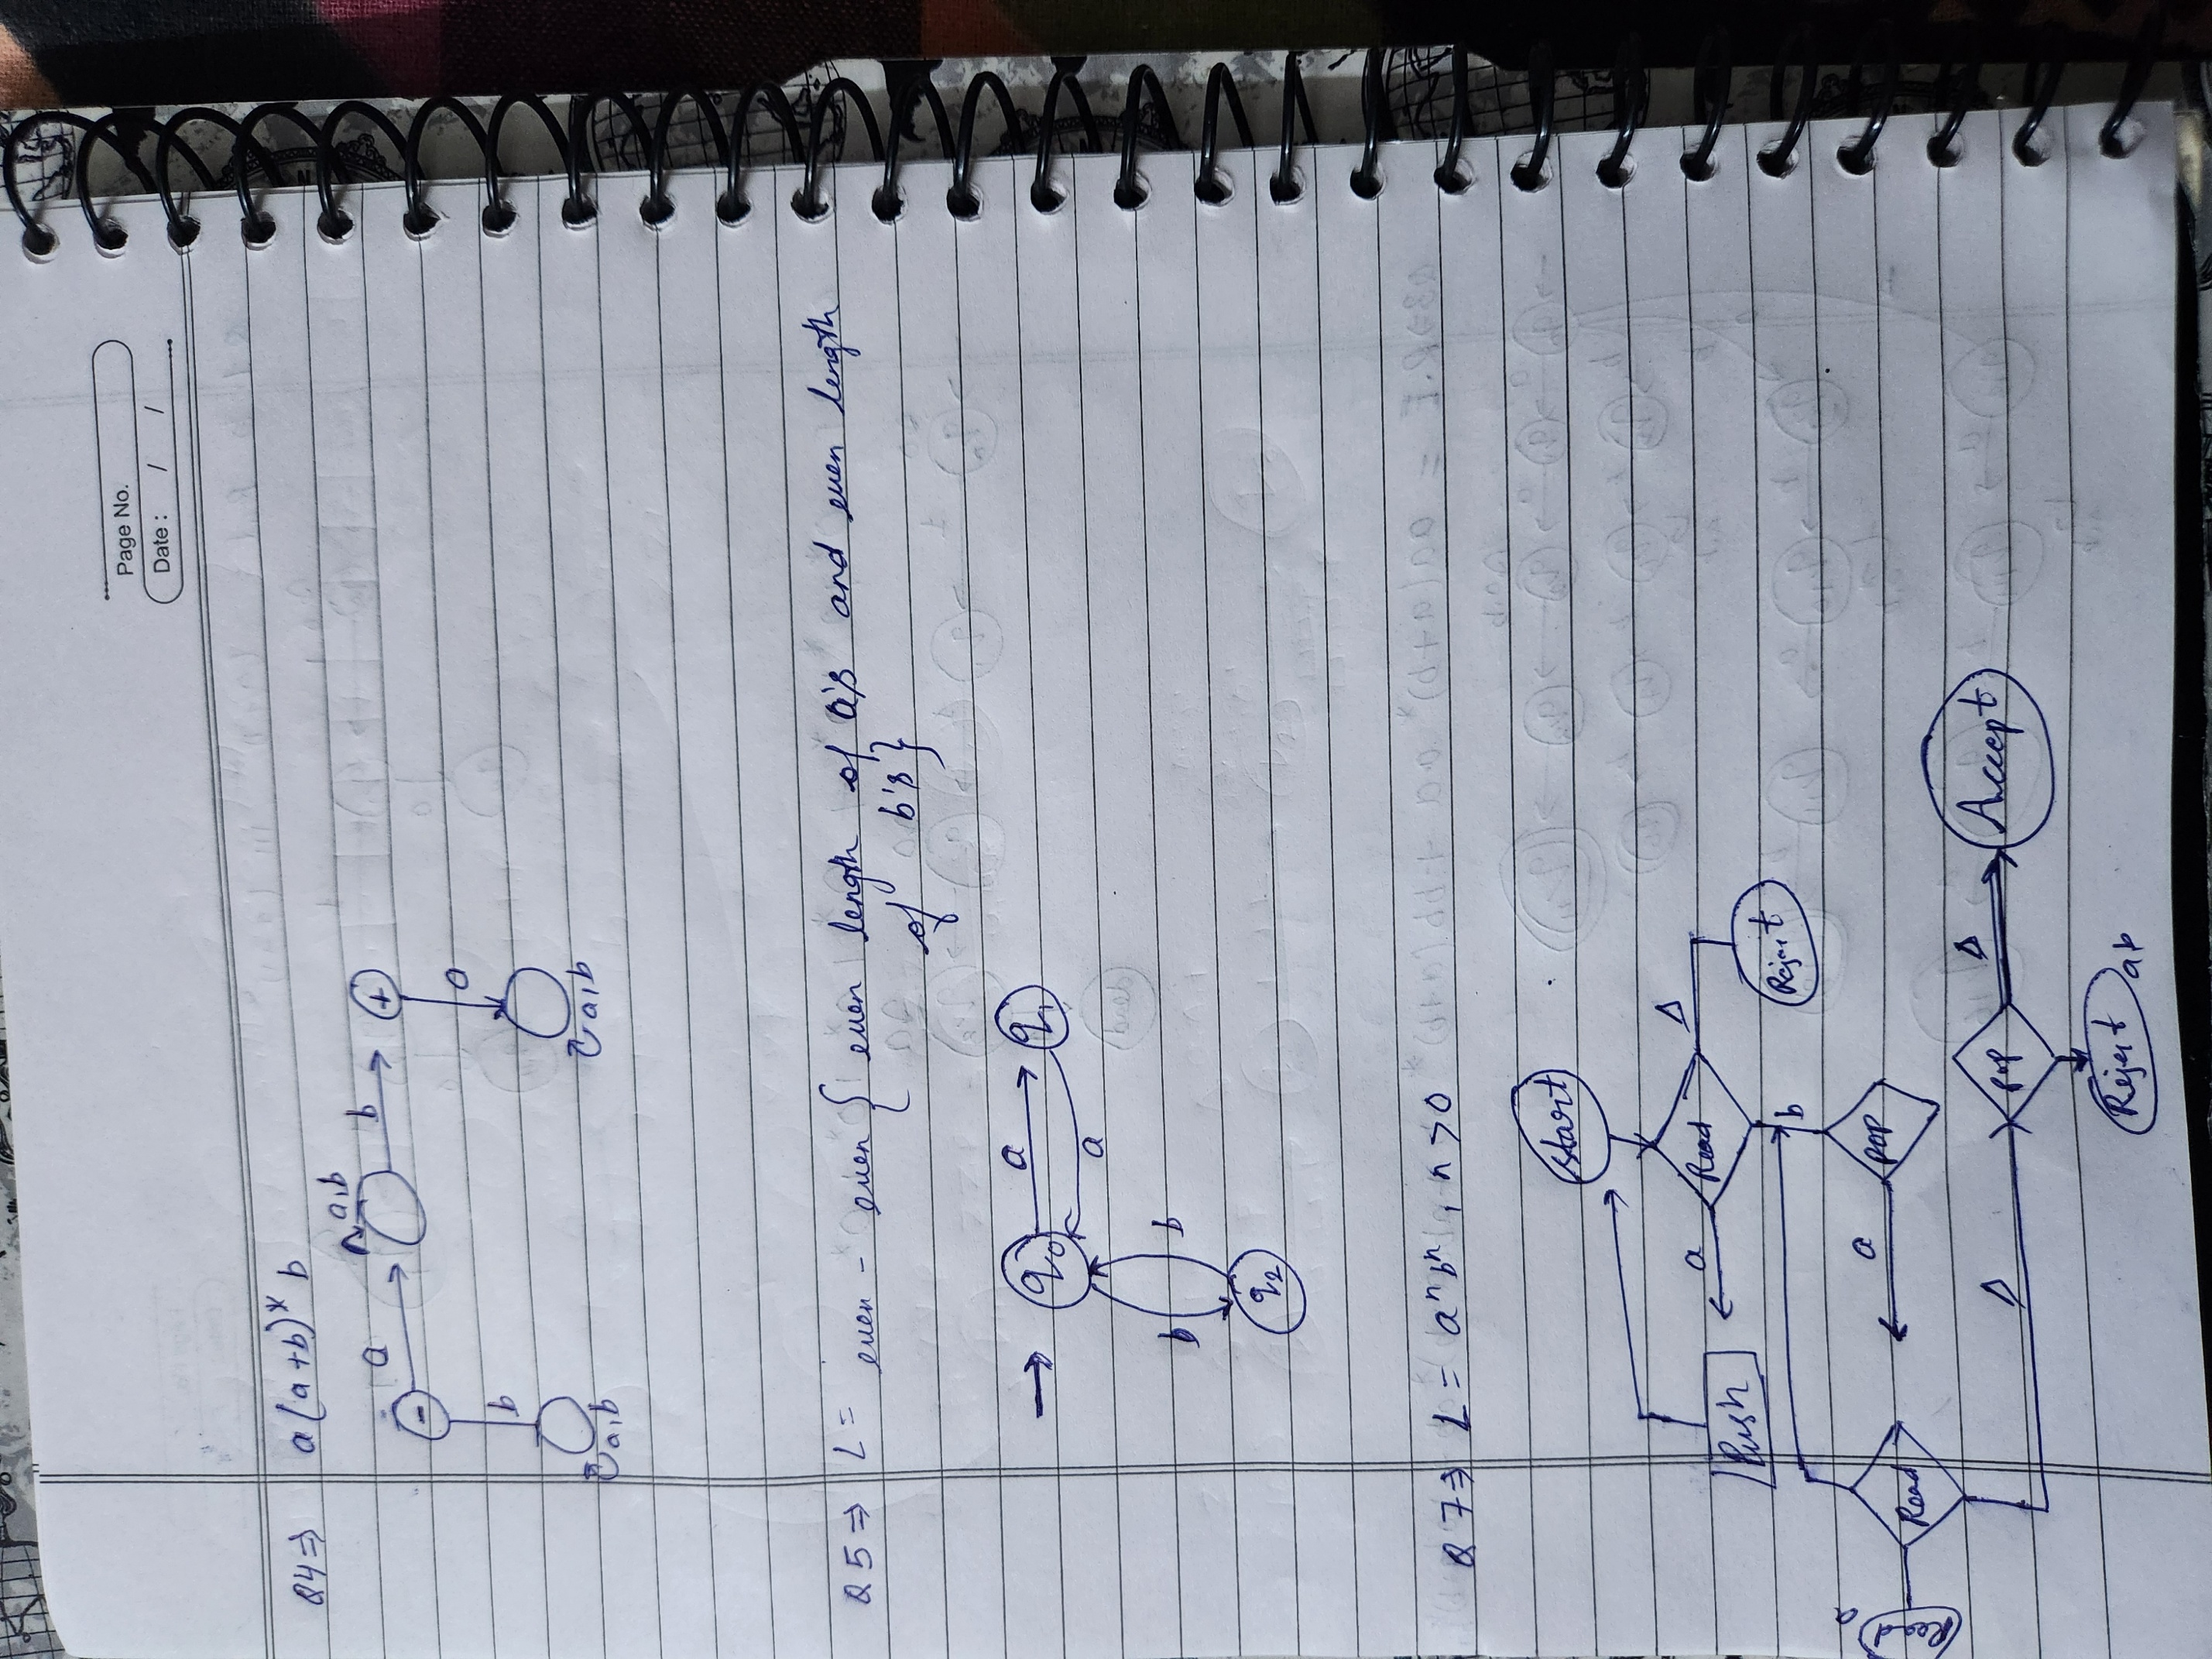 Page No.
Date : / /
Q4⇒ a(a+b)* b
a,b
- a b +
b a
a,b a,b
Q5⇒ L = even - even { even length of a's and even length
of b's }
→ q0 a q1
a
b b
q2
Q7⇒ L = aⁿbⁿ n>0
Start
Read Δ
a Reject
Push b
a POP
Read
a Δ POP Δ Accept
Reject ab